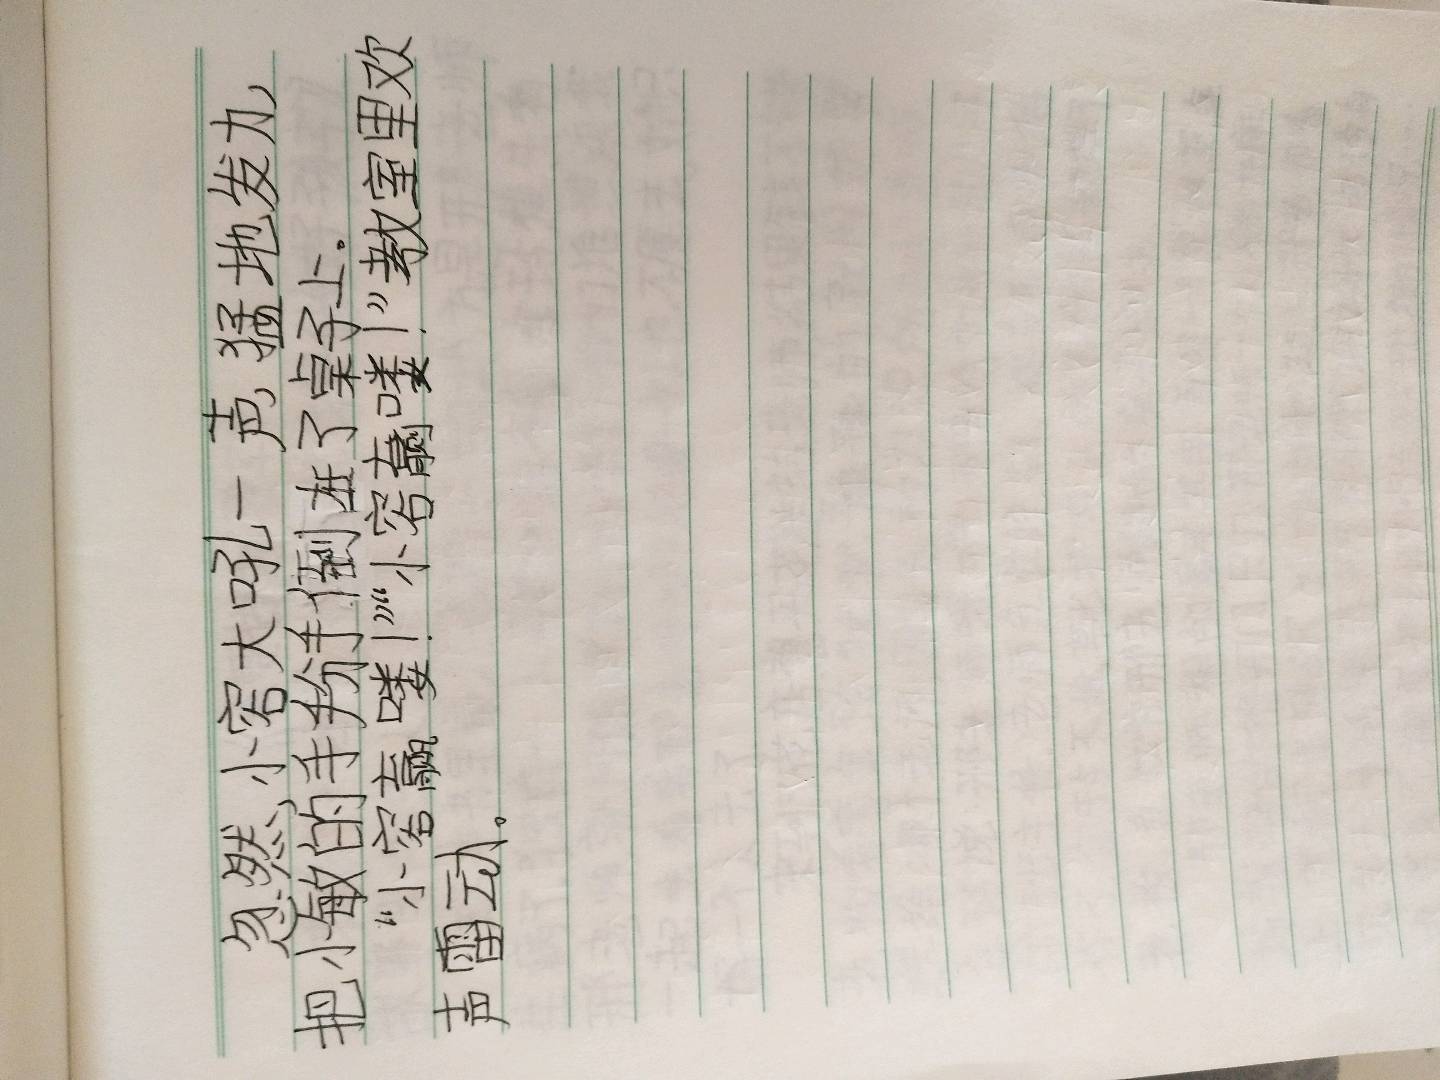 忽然，小容大吼一声，猛地发力，
把小敏的手扮手倒在了桌子上。
“小容赢喽！”“小容赢喽！”教室里欢
声雷动。